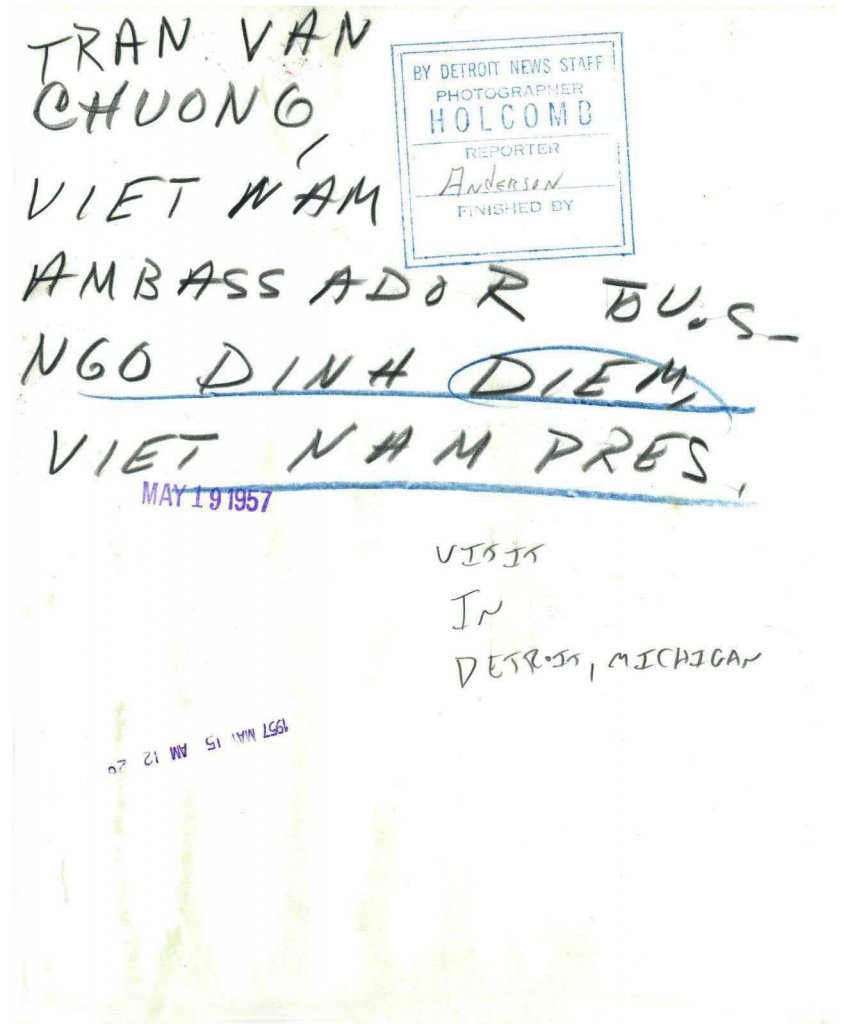 TRAN VAN
CHUONG,
VIET NAM
AMBASSADOR TO U.S.
NGO DINH DIEM,
VIET NAM PRES.
BY DETROIT NEWS STAFF
PHOTOGRAPHER
HOLCOMB
REPORTER
Anderson
FINISHED BY
MAY 19 1957
VISIT
IN
DETROIT, MICHIGAN
1957 MAY 15 AM 12 20